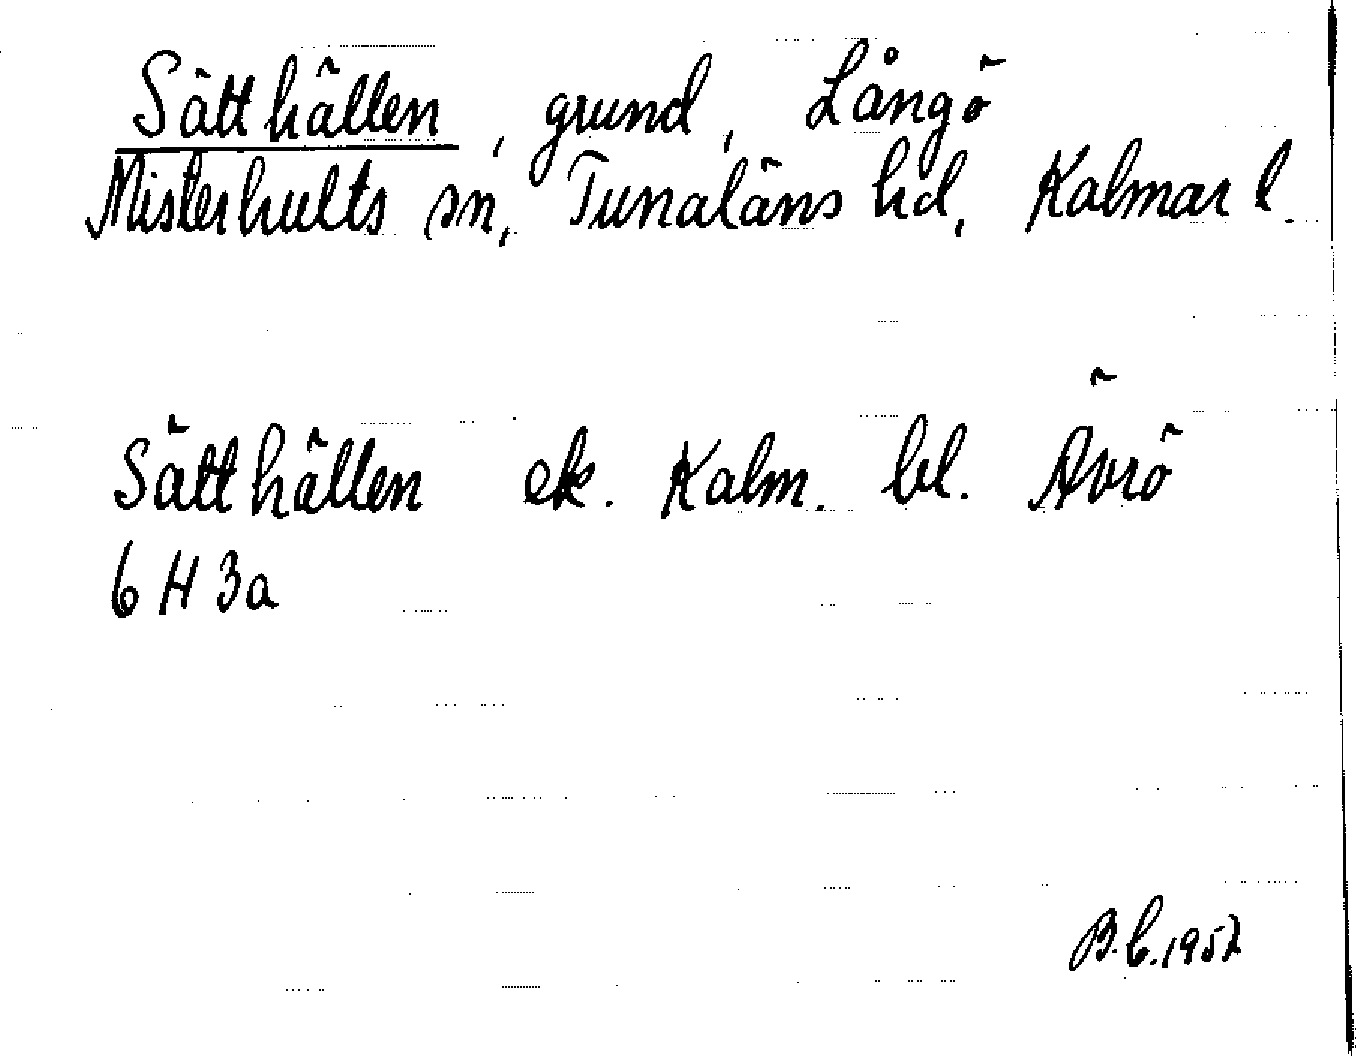 Sätthällen, grund, Långö
Misterhults sn, Tunaläns hd, Kalmar l.
Sätthällen ek. Kalm. bl. Ävrö
6 H 3a
B.C. 1952